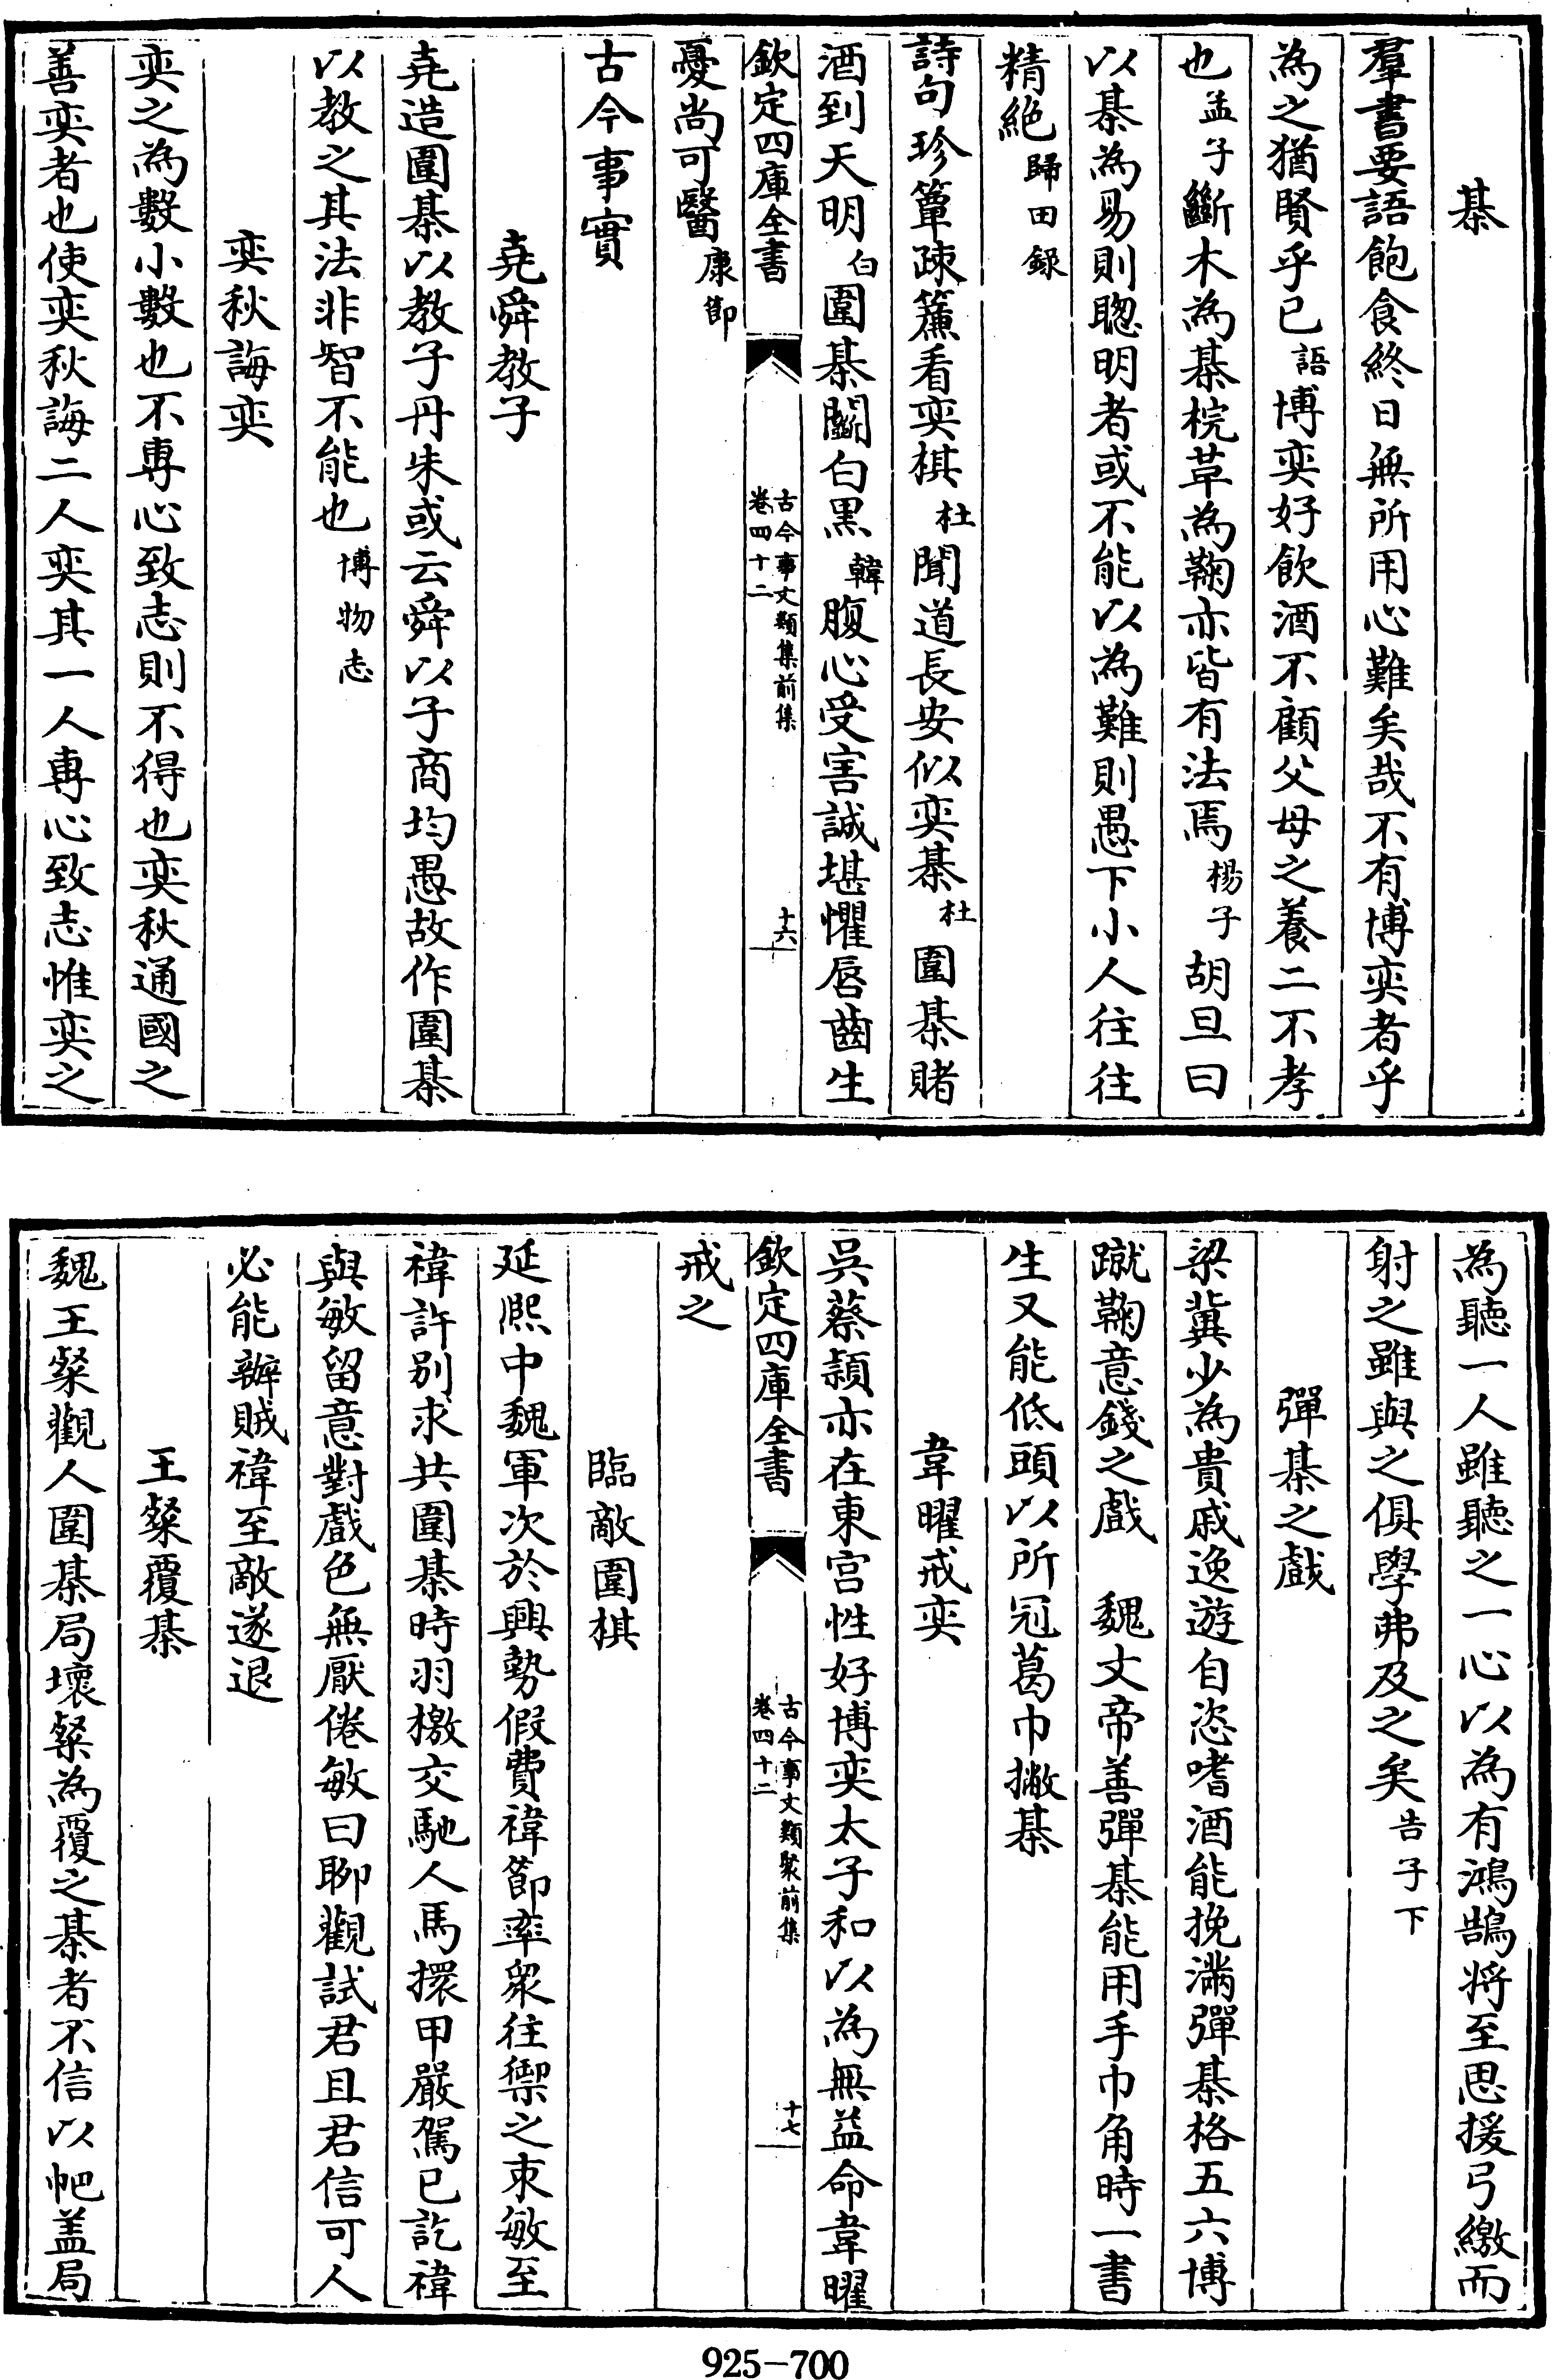 棊
羣書要語飽食終日無所用心難矣哉不有博奕者乎
為之猶賢乎已語博奕好飲酒不顧父母之養二不孝
也孟子斷木為棊梡革為鞠亦皆有法焉楊子胡旦曰
以棊為易則聰明者或不能以為難則愚下小人往往
精絕歸田録
詩句珍簟疎簾看奕棋杜聞道長安似奕棊杜圍棊賭
酒到天明白圍棊鬬白黒韓腹心受害誠堪懼唇齒生
欽定四庫全書
古今事文類集前集
卷四十二
十六
憂尚可醫康節
古今事實
堯舜教子
堯造圍棊以教子丹朱或云舜以子商均愚故作圍棊
以教之其法非智不能也博物志
奕秋誨奕
奕之為數小數也不專心致志則不得也奕秋通國之
善奕者也使奕秋誨二人奕其一人專心致志惟奕之
為聽一人雖聽之一心以為有鴻鵠将至思援弓繳而
射之雖與之俱學弗及之矣告子下
彈棊之戲
梁冀少為貴戚逸遊自恣嗜酒能挽滿彈棊格五六博
蹴鞠意錢之戲 魏文帝善彈棊能用手巾角時一書
生又能低頭以所冠葛巾撇棊
韋曜戒奕
吳蔡頴亦在東宫性好博奕太子和以為無益命韋曜
欽定四庫全書
古今事文類聚前集
卷四十二
十七
戒之
臨敵圍棋
延熙中魏軍次於興勢假費禕節率衆往禦之來敏至
禕許别求共圍棊時羽檄交馳人馬擐甲嚴駕已訖禕
與敏留意對戲色無厭倦敏曰聊觀試君且君信可人
必能辦賊禕至敵遂退
王粲覆棊
魏王粲觀人圍棊局壞粲為覆之棊者不信以帊盖局
925-700